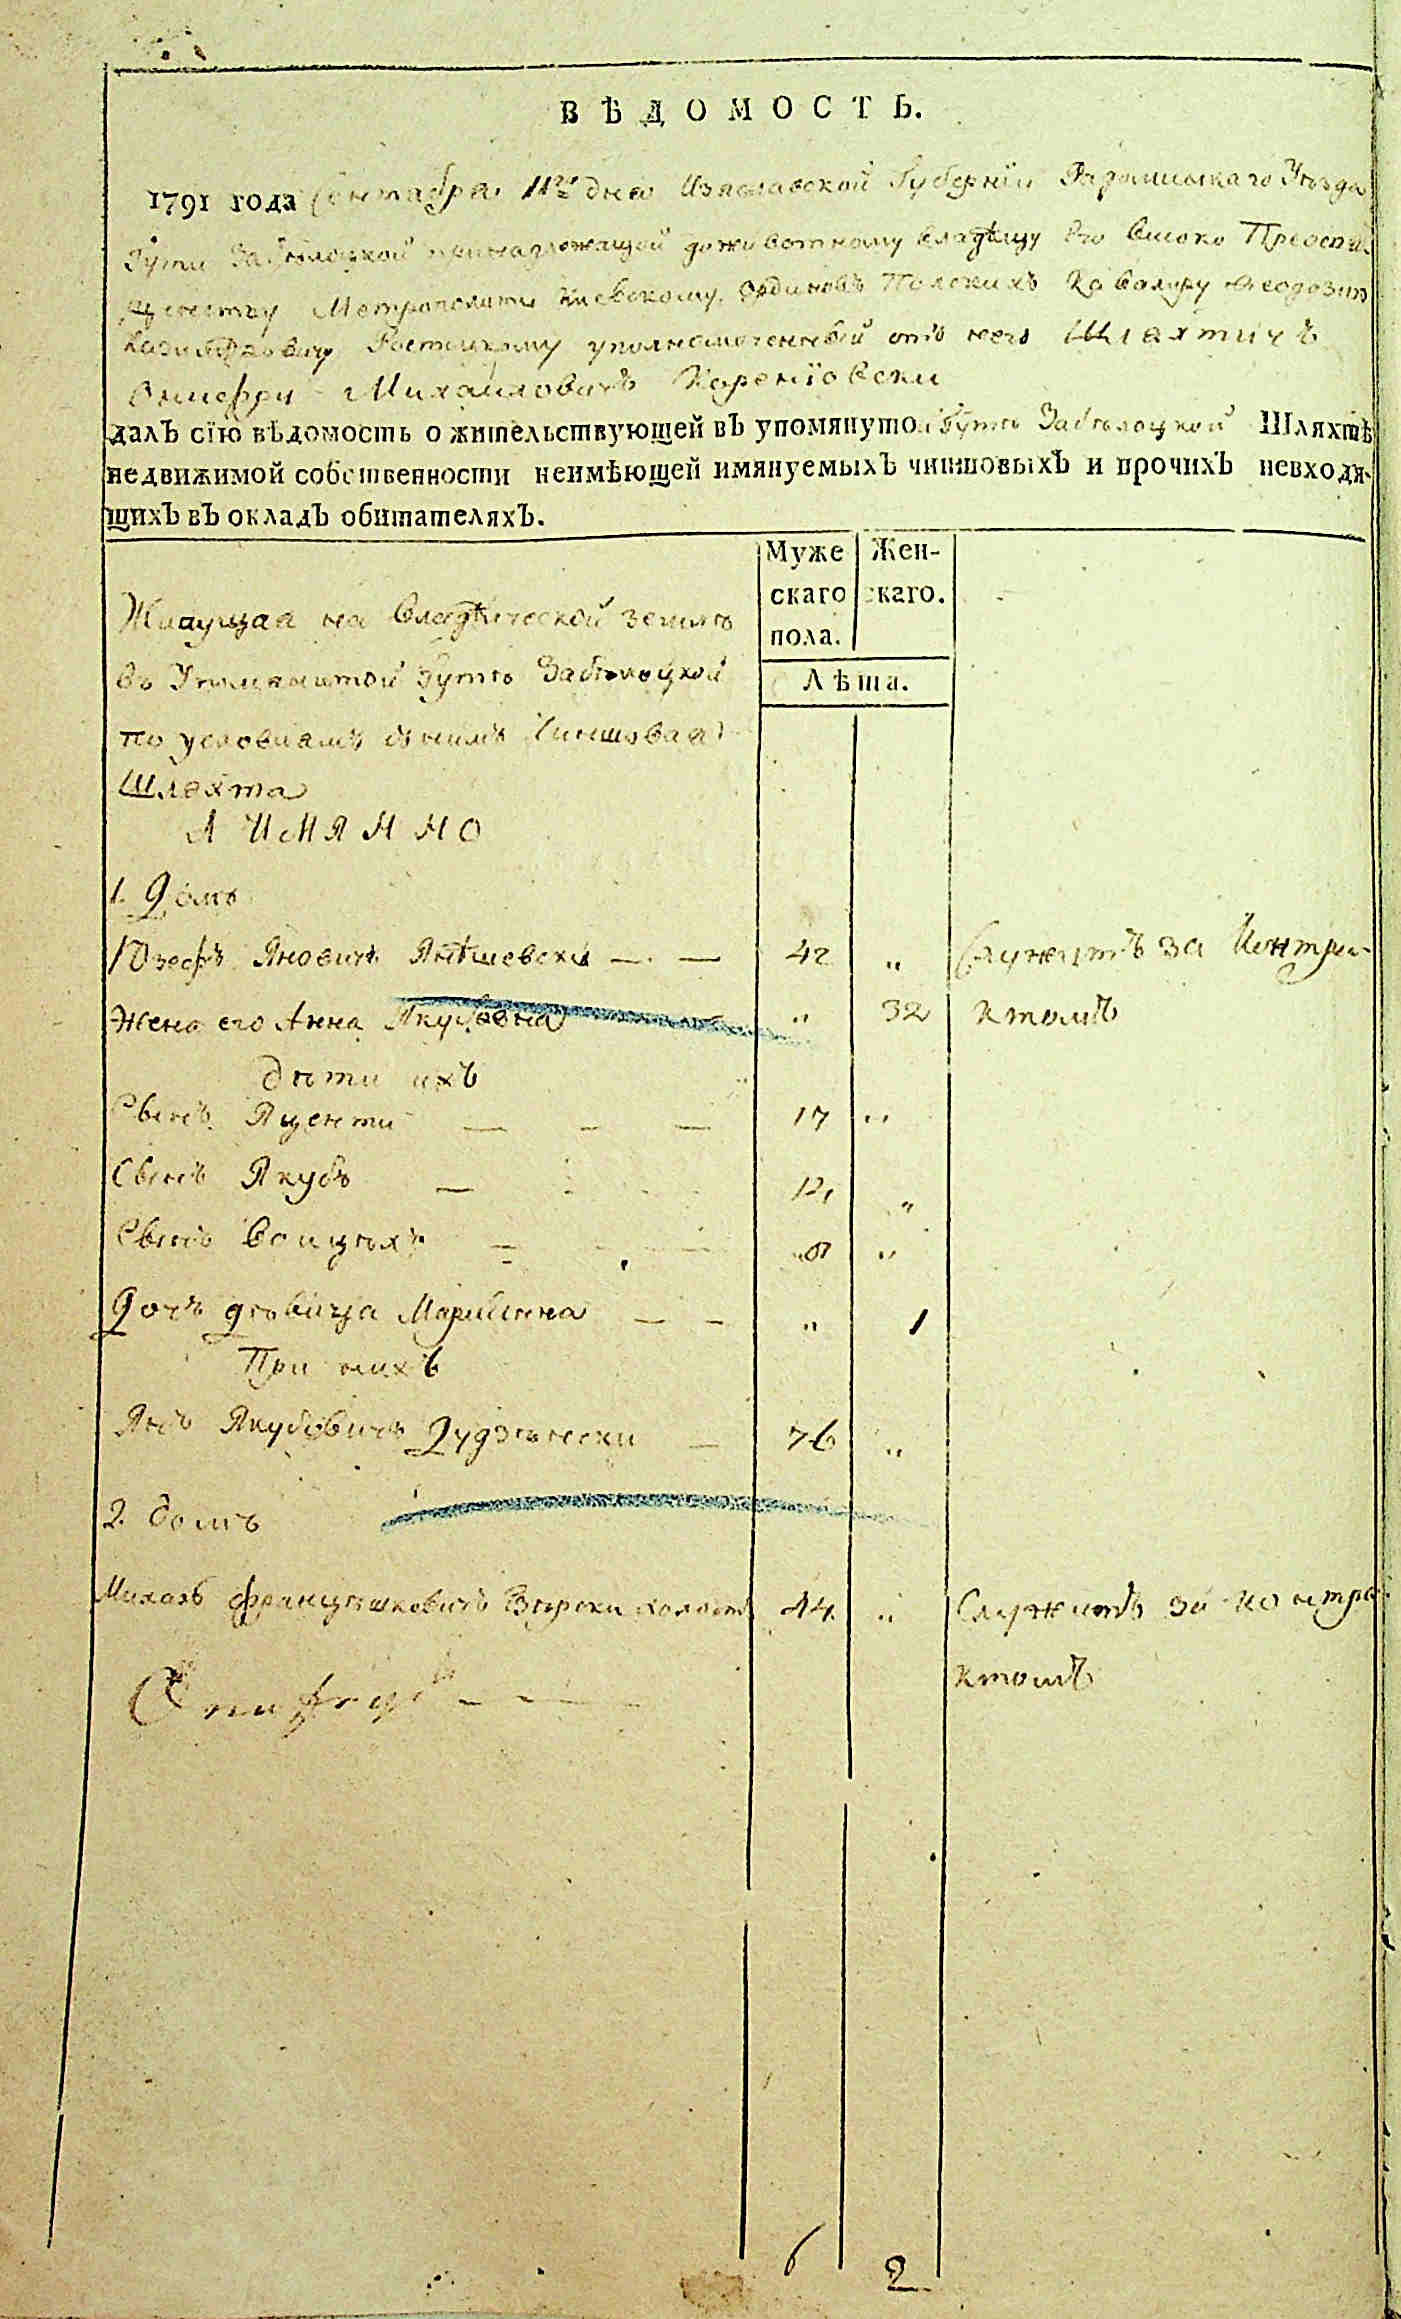 ВѢДОМОСТЬ.
1791 года Сентября 11го дня Изяславской Губернїи Радомисльскаго Уѣзда
Гути Забѣлоцкой принадлежащей доживотному владѣлцу Его Високо Преосвя
щенству Метрополиты Киевскому Ординовъ Полскихъ Кавалиру Феодозию
Ростоцкому уполномоченный отъ него Шляхтичъ
Онисфри Михайловичъ
далЪ сїю вѣдомость о жительствующей вЪ упомянутой Гутѣ Забѣлоцкой Шляхтѣ
недвижимой собственности неимѣющей имянуемыхЪ чиншовыхЪ и прочихЪ невходя-
щихЪ вЪ окладЪ обитателяхЪ.
Муже Жен-
скаго скаго.
пола.
Лѣта.
Жиущая на владѣлческой земли
въ Упомянитой Гутѣ Забѣлоцкой
по условиамъ съ нимъ Чиншовая
Шляхта
А ИМЯННО
1. Домъ
Юзефъ Яновичъ — — 42 „ Служитъ за Контра-
Жена его Анна Якубовна „ 32 ктомъ
Дѣти ихъ
Сынъ Яценти — — — 17 „
Сынъ Якубъ — 12 „
Сынъ Воицѣхъ — 8 „
Дочъ дѣвица Марианна — — „ 1
При нихъ
Янъ Якубовичъ — 76 „
2. домъ
Михалъ Францишковичъ холостъ 44 „ Служитъ за контра
ктомъ
6 2